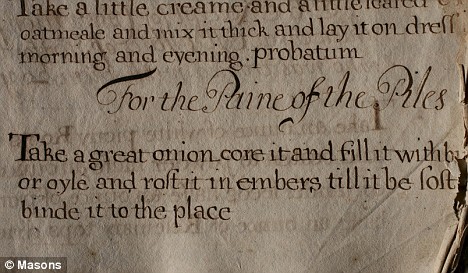 Take a little creame and a little searced
oatmeale and mix it thick and lay it on dress
morning and evening. probatum
For the Paine of the Piles
Take a great onion core it and fill it with bu
or oyle and rost it in embers till it be soft
binde it to the place
© Masons